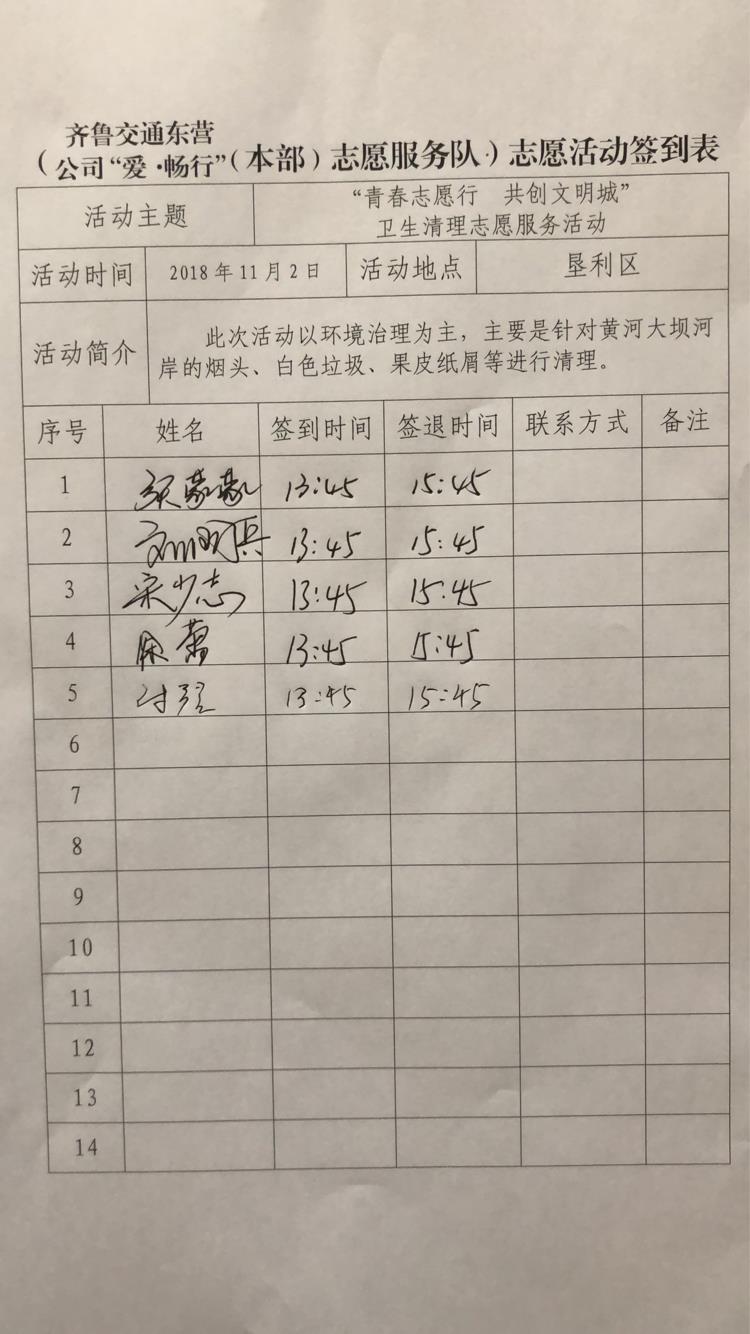 齐鲁交通东营
（公司“爱·畅行”（本部）志愿服务队）志愿活动签到表
活动主题
“青春志愿行 共创文明城”
卫生清理志愿服务活动
活动时间 2018年11月2日 活动地点 垦利区
活动简介
此次活动以环境治理为主，主要是针对黄河大坝河
岸的烟头、白色垃圾、果皮纸屑等进行清理。
序号 姓名 签到时间 签退时间 联系方式 备注
1 13:45 15:45
2 13:45 15:45
3 宋少志 13:45 15:45
4 13:45 15:45
5 13:45 15:45
6
7
8
9
10
11
12
13
14